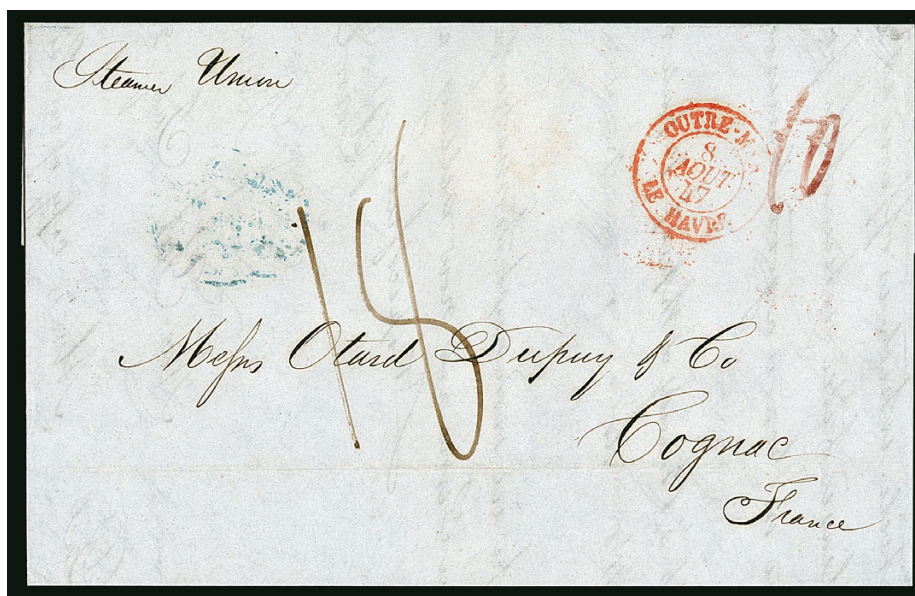 Steamer Union
OUTRE-M
8
AOUT
47
LE HAVRE
10
18
Messrs Otard Dupuy & Co
Cognac
France